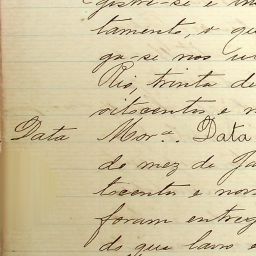 gistre-se e in
tamento, o qu
ga-se nos
Rio, trinta de
oitocentos e n
Data Mor.ª. Data
do mez de Ja
tocentos e nov
foram entreg
do que lavro e